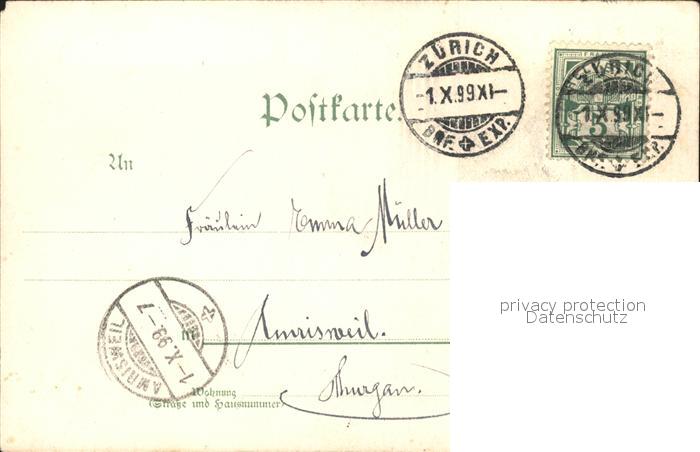 ZÜRICH
-1.X.99.XI-
BRF. EXP.
ZÜRICH
-1.X.99.XI-
BRF. EXP.
5
Postkarte.
An
Fräulein Emma Müller
privacy protection
Datenschutz
in Amrisweil.
AMRISWEIL
1-X.99-7
Thurgau.
Wohnung
(Straße und Hausnummer)